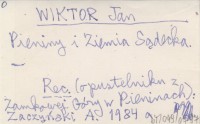 WIKTOR Jan
Pieniny i Ziemia Sądecka.
—
Rec. (o pustelniku z
Zamkowej Góry w Pieninach):
Zaczyński A. 1984 g